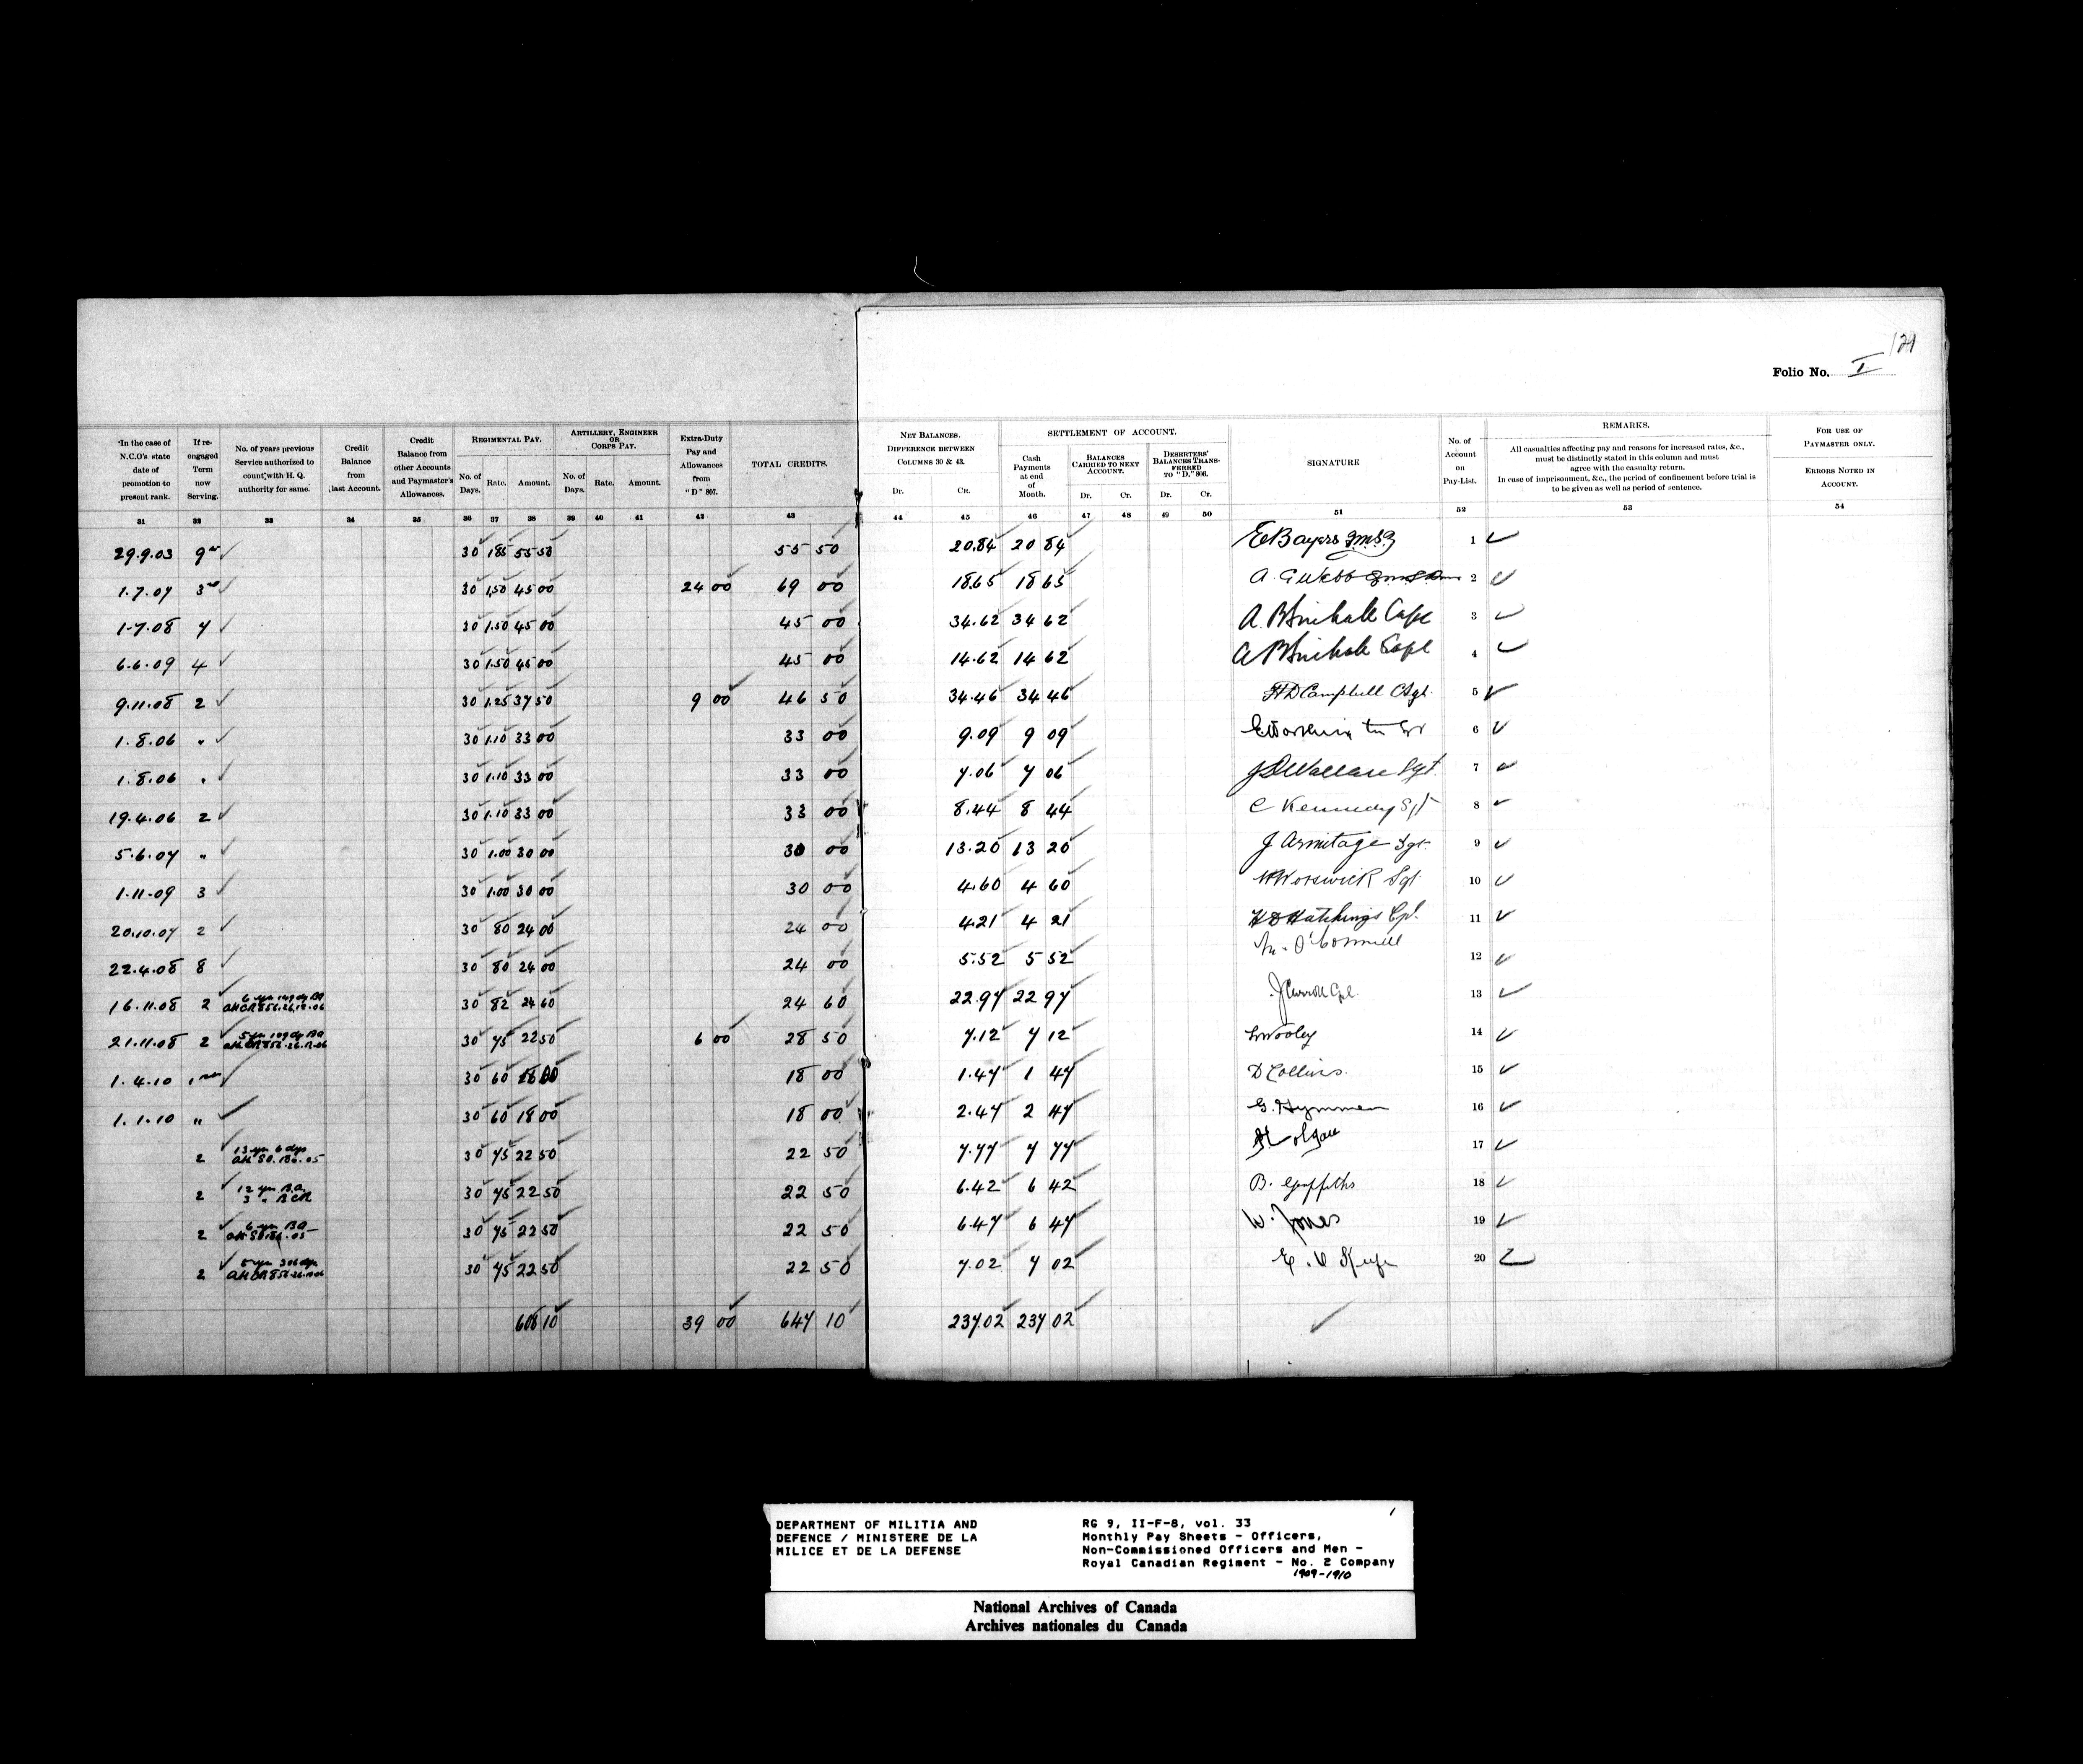 124
Folio No. I
'In the case of N.C.O's state date of promotion to present rank.
If re-engaged Term now Serving.
No. of years previous Service authorized to count, with H. Q. authority for same.
Credit Balance from last Account.
Credit Balance from other Accounts and Paymaster's Allowances.
REGIMENTAL PAY.
No. of Days. Rate. Amount.
ARTILLERY, ENGINEER OR CORPS PAY.
No. of Days. Rate. Amount.
Extra-Duty Pay and Allowances from "D" 807.
TOTAL CREDITS.
NET BALANCES. DIFFERENCE BETWEEN COLUMNS 30 & 43.
Dr. Cr.
SETTLEMENT OF ACCOUNT.
Cash Payments at end of Month.
BALANCES CARRIED TO NEXT ACCOUNT.
Dr. Cr.
DESERTERS' BALANCES TRANSFERRED TO "D." 806.
Dr. Cr.
SIGNATURE
No. of Account on Pay-List.
REMARKS.
All casualties affecting pay and reasons for increased rates, &c.,
must be distinctly stated in this column and must
agree with the casualty return.
In case of imprisonment, &c., the period of confinement before trial is
to be given as well as period of sentence.
FOR USE OF PAYMASTER ONLY.
ERRORS NOTED IN ACCOUNT.
31 32 33 34 35 36 37 38 39 40 41 42 43 44 45 46 47 48 49 50 51 52 53 54
29.9.03 9 30 1.85 55 50 55 50 20.84 20 84 E Bayers 1
1.7.07 3rd 30 1.50 45 00 24 00 69 00 18.65 18 65 A. G Webb 2
1.7.08 7 30 1.50 45 00 45 00 34.62 34 62 3
6.6.09 4 30 1.50 45 00 45 00 14.62 14 62 4
9.11.08 2 30 1.25 37 50 9 00 46 50 34.46 34 46 Campbell CSgt. 5
1.8.06 " 30 1.10 33 00 33 00 9.09 9 09 6
1.8.06 " 30 1.10 33 00 33 00 7.06 7 06 Wallace Sgt. 7
19.4.06 2 30 1.10 33 00 33 00 8.44 8 44 C Kennedy Sgt 8
5.6.07 " 30 1.00 30 00 30 00 13.20 13 20 J Armitage Sgt. 9
1.11.09 3 30 1.00 30 00 30 00 4.60 4 60 Worswick Sgt 10
20.10.07 2 30 80 24 00 24 00 4.21 4 21 Hutchings Cpl. 11
22.4.08 8 30 80 24 00 24 00 5.52 5 52 O'Connell 12
16.11.08 2 30 82 24 60 24 60 22.97 22 97 J Carroll Cpl. 13
21.11.08 2 30 75 22 50 6 00 28 50 7.12 7 12 Wooley 14
1.4.10 1st 30 60 18 00 18 00 1.47 1 47 D Collins. 15
1.1.10 " 30 60 18 00 18 00 2.47 2 47 G. Hymmen 16
2 13 yrs 6 dys 30 75 22 50 22 50 7.77 7 77 17
2 12 yrs R.A. 3 " RCR 30 75 22 50 22 50 6.42 6 42 B. Griffiths 18
2 6 yrs RA 30 75 22 50 22 50 6.47 6 47 W. Jones 19
2 30 75 22 50 22 50 7.02 7 02 20
608 10 39 00 647 10 237.02 237 02
DEPARTMENT OF MILITIA AND
DEFENCE / MINISTERE DE LA
MILICE ET DE LA DEFENSE
RG 9, II-F-8, vol. 33
Monthly Pay Sheets - Officers,
Non-Commissioned Officers and Men -
Royal Canadian Regiment - No. 2 Company
1909-1910
National Archives of Canada
Archives nationales du Canada